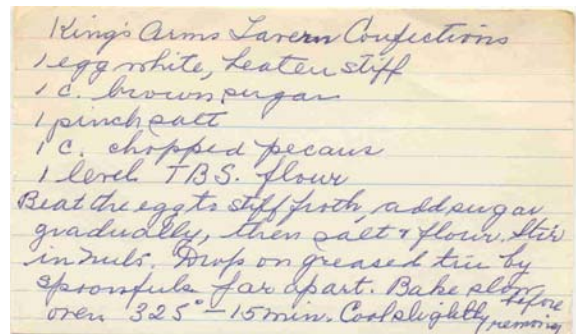 King's Arms Tavern Confections
1 egg white, beaten stiff
1 c. brown sugar
1 pinch salt
1 c. chopped pecans
1 level TBS. flour
Beat the egg to stiff froth, add sugar
gradually, then salt & flour. Stir
in nuts. Drop on greased tin by
spoonfuls far apart. Bake slow
oven 325° - 15 min. Cool slightly before
removing